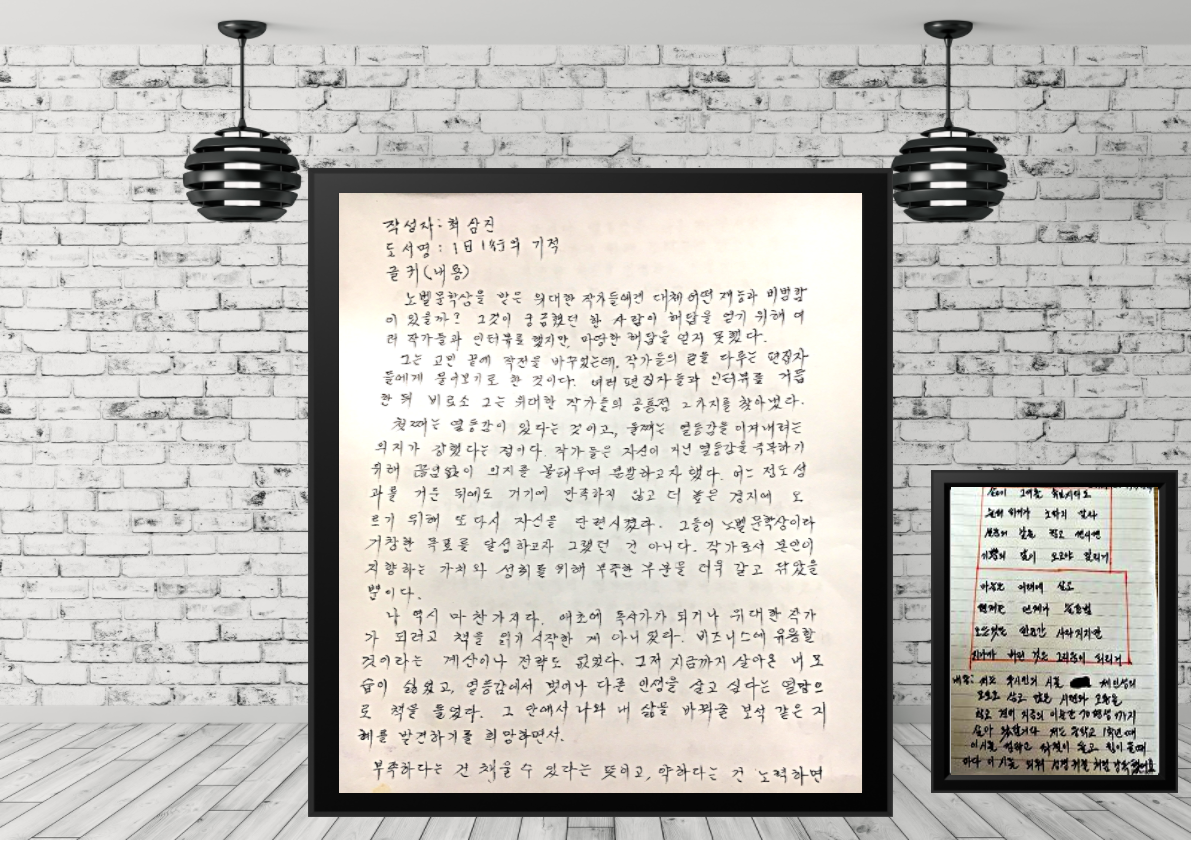 작성자: 최삼진
도서명: 1日 1行의 기적
글귀(내용)
노벨문학상을 받은 위대한 작가들에겐 대체 어떤 재능과 비범함
이 있을까? 그것이 궁금했던 한 사람이 해답을 얻기 위해 여
러 작가들과 인터뷰를 했지만, 마땅한 해답을 얻지 못했다.
그는 고민 끝에 작전을 바꾸었는데, 작가들의 글을 다루는 편집자
들에게 물어보기로 한 것이다. 여러 편집자들과 인터뷰를 거듭
한 뒤 비로소 그는 위대한 작가들의 공통점 2가지를 찾아냈다.
첫째는 열등감이 있다는 것이고, 둘째는 열등감을 이겨내려는
의지가 강했다는 점이다. 작가들은 자신이 지닌 열등감을 극복하기
위해 끊임없이 의지를 불태우며 분발하고자 했다. 어느 정도 성
과를 거둔 뒤에도 거기에 만족하지 않고 더 높은 경지에 오
르기 위해 또다시 자신을 단련시켰다. 그들이 노벨문학상이라
거창한 목표를 달성하고자 그랬던 건 아니다. 작가로서 본인이
지향하는 가치와 성취를 위해 부족한 부분을 더욱 갈고 닦았을
뿐이다.
나 역시 마찬가지다. 애초에 독서가가 되거나 위대한 작가
가 되려고 책을 읽기 시작한 게 아니었다. 비즈니스에 유용할
것이라는 계산이나 전략도 없었다. 그저 지금까지 살아온 내 모
습이 싫었고, 열등감에서 벗어나 다른 인생을 살고 싶다는 열망으
로 책을 들었다. 그 안에서 나와 내 삶을 바꿔줄 보석 같은 지
혜를 발견하기를 희망하면서.
부족하다는 건 채울 수 있다는 뜻이고, 약하다는 건 노력하면
삶이 그대를 속일지라도
슬퍼 하거나 노하지 말라
슬픔의 날을 참고 견디면
기쁨의 날이 오고야 말리니
마음은 미래에 살고
현재는 언제나 슬픈법
모든것은 순간 사라지지만
지나가 버린 것은 그리움이 되리니